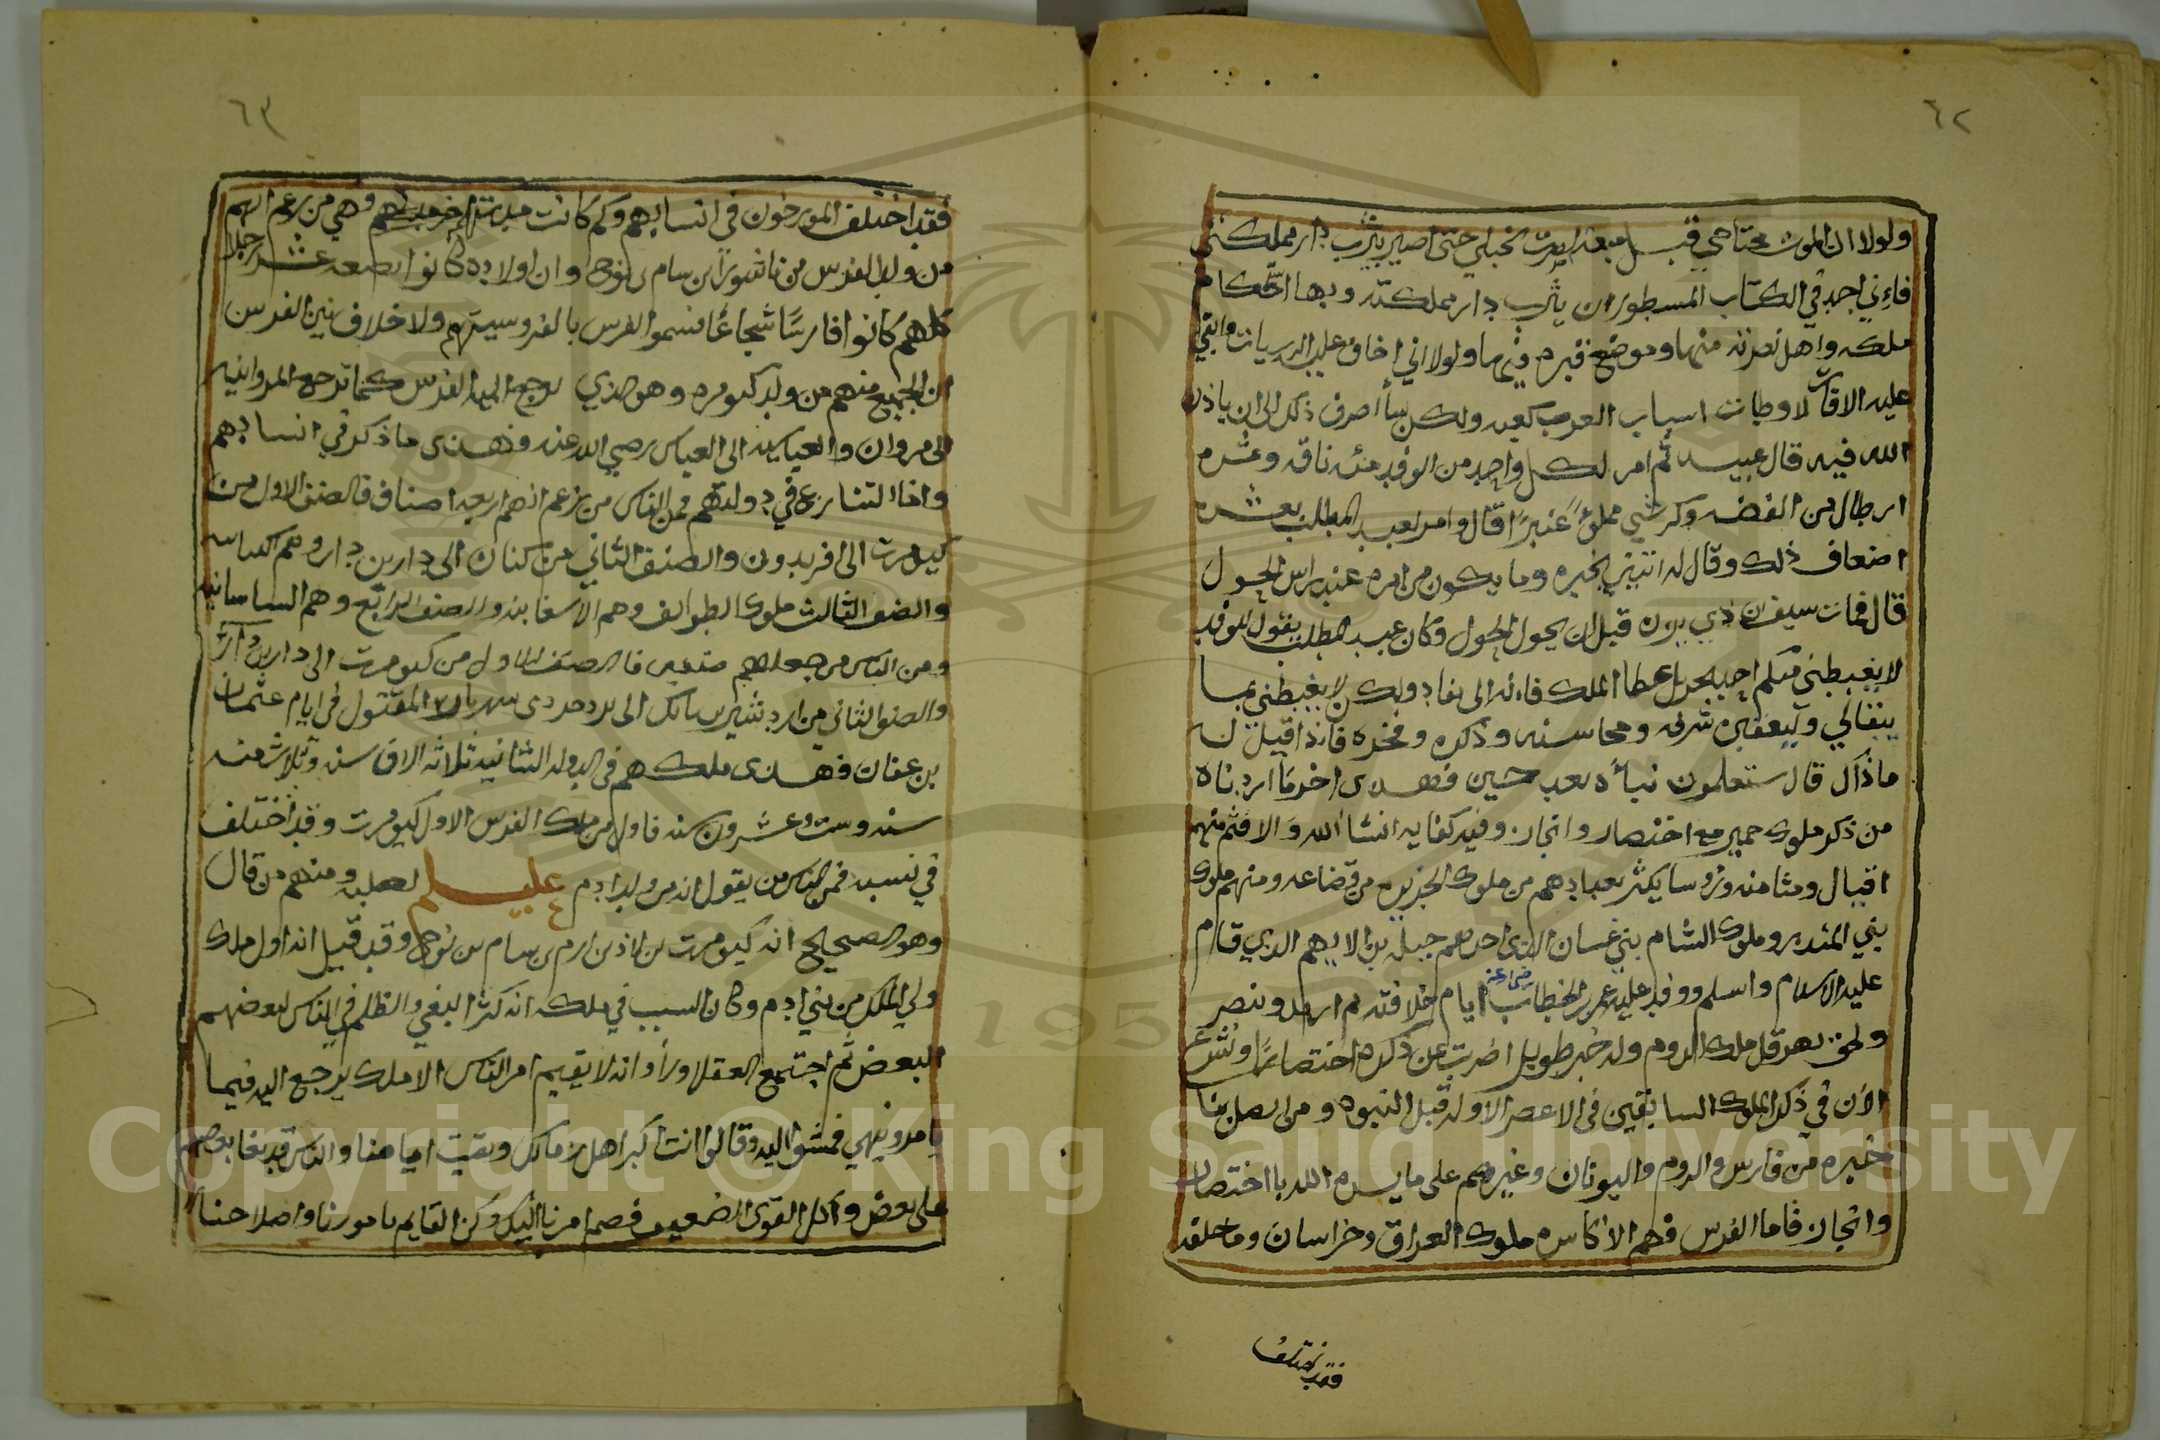 ٦٢
ولولا ان الموت مجتاحي قبل مبعثه لسرت بخيلي حتى اصير بيثرب دار مملكتي
فاءني اجد في الكتاب المسطور ان يثرب دار مملكته وبها احكام
ملكه واهل نصرته منها وموضع قبره فيها ولولا اني اخاف عليه
عليه الافات لاوطات اسباب العرب كعبه ولكن سأصرف ذلك الى ان ياذن
الله فيه قال عبيد ثم امر لكل واحد من الوفد مئة ناقه وعشره
ارطال من الفضه وكرشي مملؤًا عنبرًا قال وامر لعبد المطلب بعشره
اضعاف ذلك وقال له ائتيني بخبره وما يكون من امره عند راس الحول
قال فمات سيف بن ذي يزن قبل ان يحول الحول وكان عبد المطلب يقول للوفد
لا يغبطني منكم احد بجزيل عطا الملك فاءنه الى نفاد ولكن لا يغبطني بما
يبقالي ولعقبي شرفه ومحاسنه وذكره وفخره فاذا قيل له
ماذاك قال ستعلمون نبأه بعد حين فهذى اخر ما اردناه
من ذكر ملوك حمير مع اختصار وانجاز وفيه كفايه انشا الله والا فثم منهم
اقيال ومثامنه وروسا يكثر تعدادهم من ملوك الجزيره من قضاعه ومنهم ملوك
بني المنذر وملوك الشام بني غسان الذى احدهم جبله بن الايهم الذي قام
عليه الاسلام واسلم ووفد عليه عمر بن الخطاب رضي الله عنه ايام خلافته ثم ارتد وتنصر
ولحق بهرقل ملك الروم وله خبر طويل اضربت عن ذكره اختصارًا ونشرع
الان في ذكر الملوك السابقين في الاعصر الاوله قبل النبوه ومن اتصل بنا
خبره من فارس والروم واليونان وغيرهم على ما يسره الله باختصار
وانجاز فاما الفرس فهم الاكاسره ملوك العراق وخراسان وما خلفه
فقد اختلف
٦٣
فقد اختلف المورخون في انسابهم وكم كانت مدت اخر ملكهم فهي من زعم انهم
من ولد الفرس من ناشورًا بن سام بن نوح وان اولاده كانوا بضعه عشر رجلا
كلهم كانوا فارسًا شجاعًا فسموا الفرس بالفروسيتهم ولا خلاف بين الفرس
ان الجميع منهم من ولد كيومره وهو الذي يرجع اليه الفرس كما ترجع المروانيه
الى مروان والعباسيه الى العباس رضي الله عنه وفهذى ما ذكر في انسابهم
واما التنازع في دولتهم فمن الناس من يزعم انهم اربعه اصناف فالصنف الاول من
كيومرت الى افريدون والصنف الثاني من كنان الى دار بن دار وهم
والصنف الثالث ملوك الطوايف وهم الاسغانيه والصنف الرابع وهم الساسانيه
ومن الناس من جعلهم صنفين فالصنف الاول من كيومرت الى دار بن دار
والصنف الثاني من اردشير بن بابك الى يزدجرد بن شهريار المقتول في ايام عثمان
بن عفان فهذى ملكهم في الدوله الثانيه ثلاثه الاف سنه وثلاث مئه
سنه وست وعشرون سنه فاول من ملك الفرس الاول كيومرت وقد اختلف
في نسبه فمن الناس من يقول انه من ولد ادم عليه السلام لصلبه ومنهم من قال
وهو الصحيح انه كيومرت بن لاذ بن ارم بن سام بن نوح وقد قيل انه اول ملك
ولي الملك من بني ادم وكان السبب في ملكه انه كثر البغي والظلم في الناس لبعضهم
البعض ثم اجتمع العقلا وراوا انه لا يقيم امر الناس الا ملك يرجع اليه فيما
يامر وينهي فمشوا اليه وقالوا انت اكبر اهل زمانك وبقيت ابانا والناس قد بغا بعضهم
على بعض واكل القوى الضعيف فضم امرنا اليك وكن القايم بامورنا واصلاحنا
Copyright © King Saud University